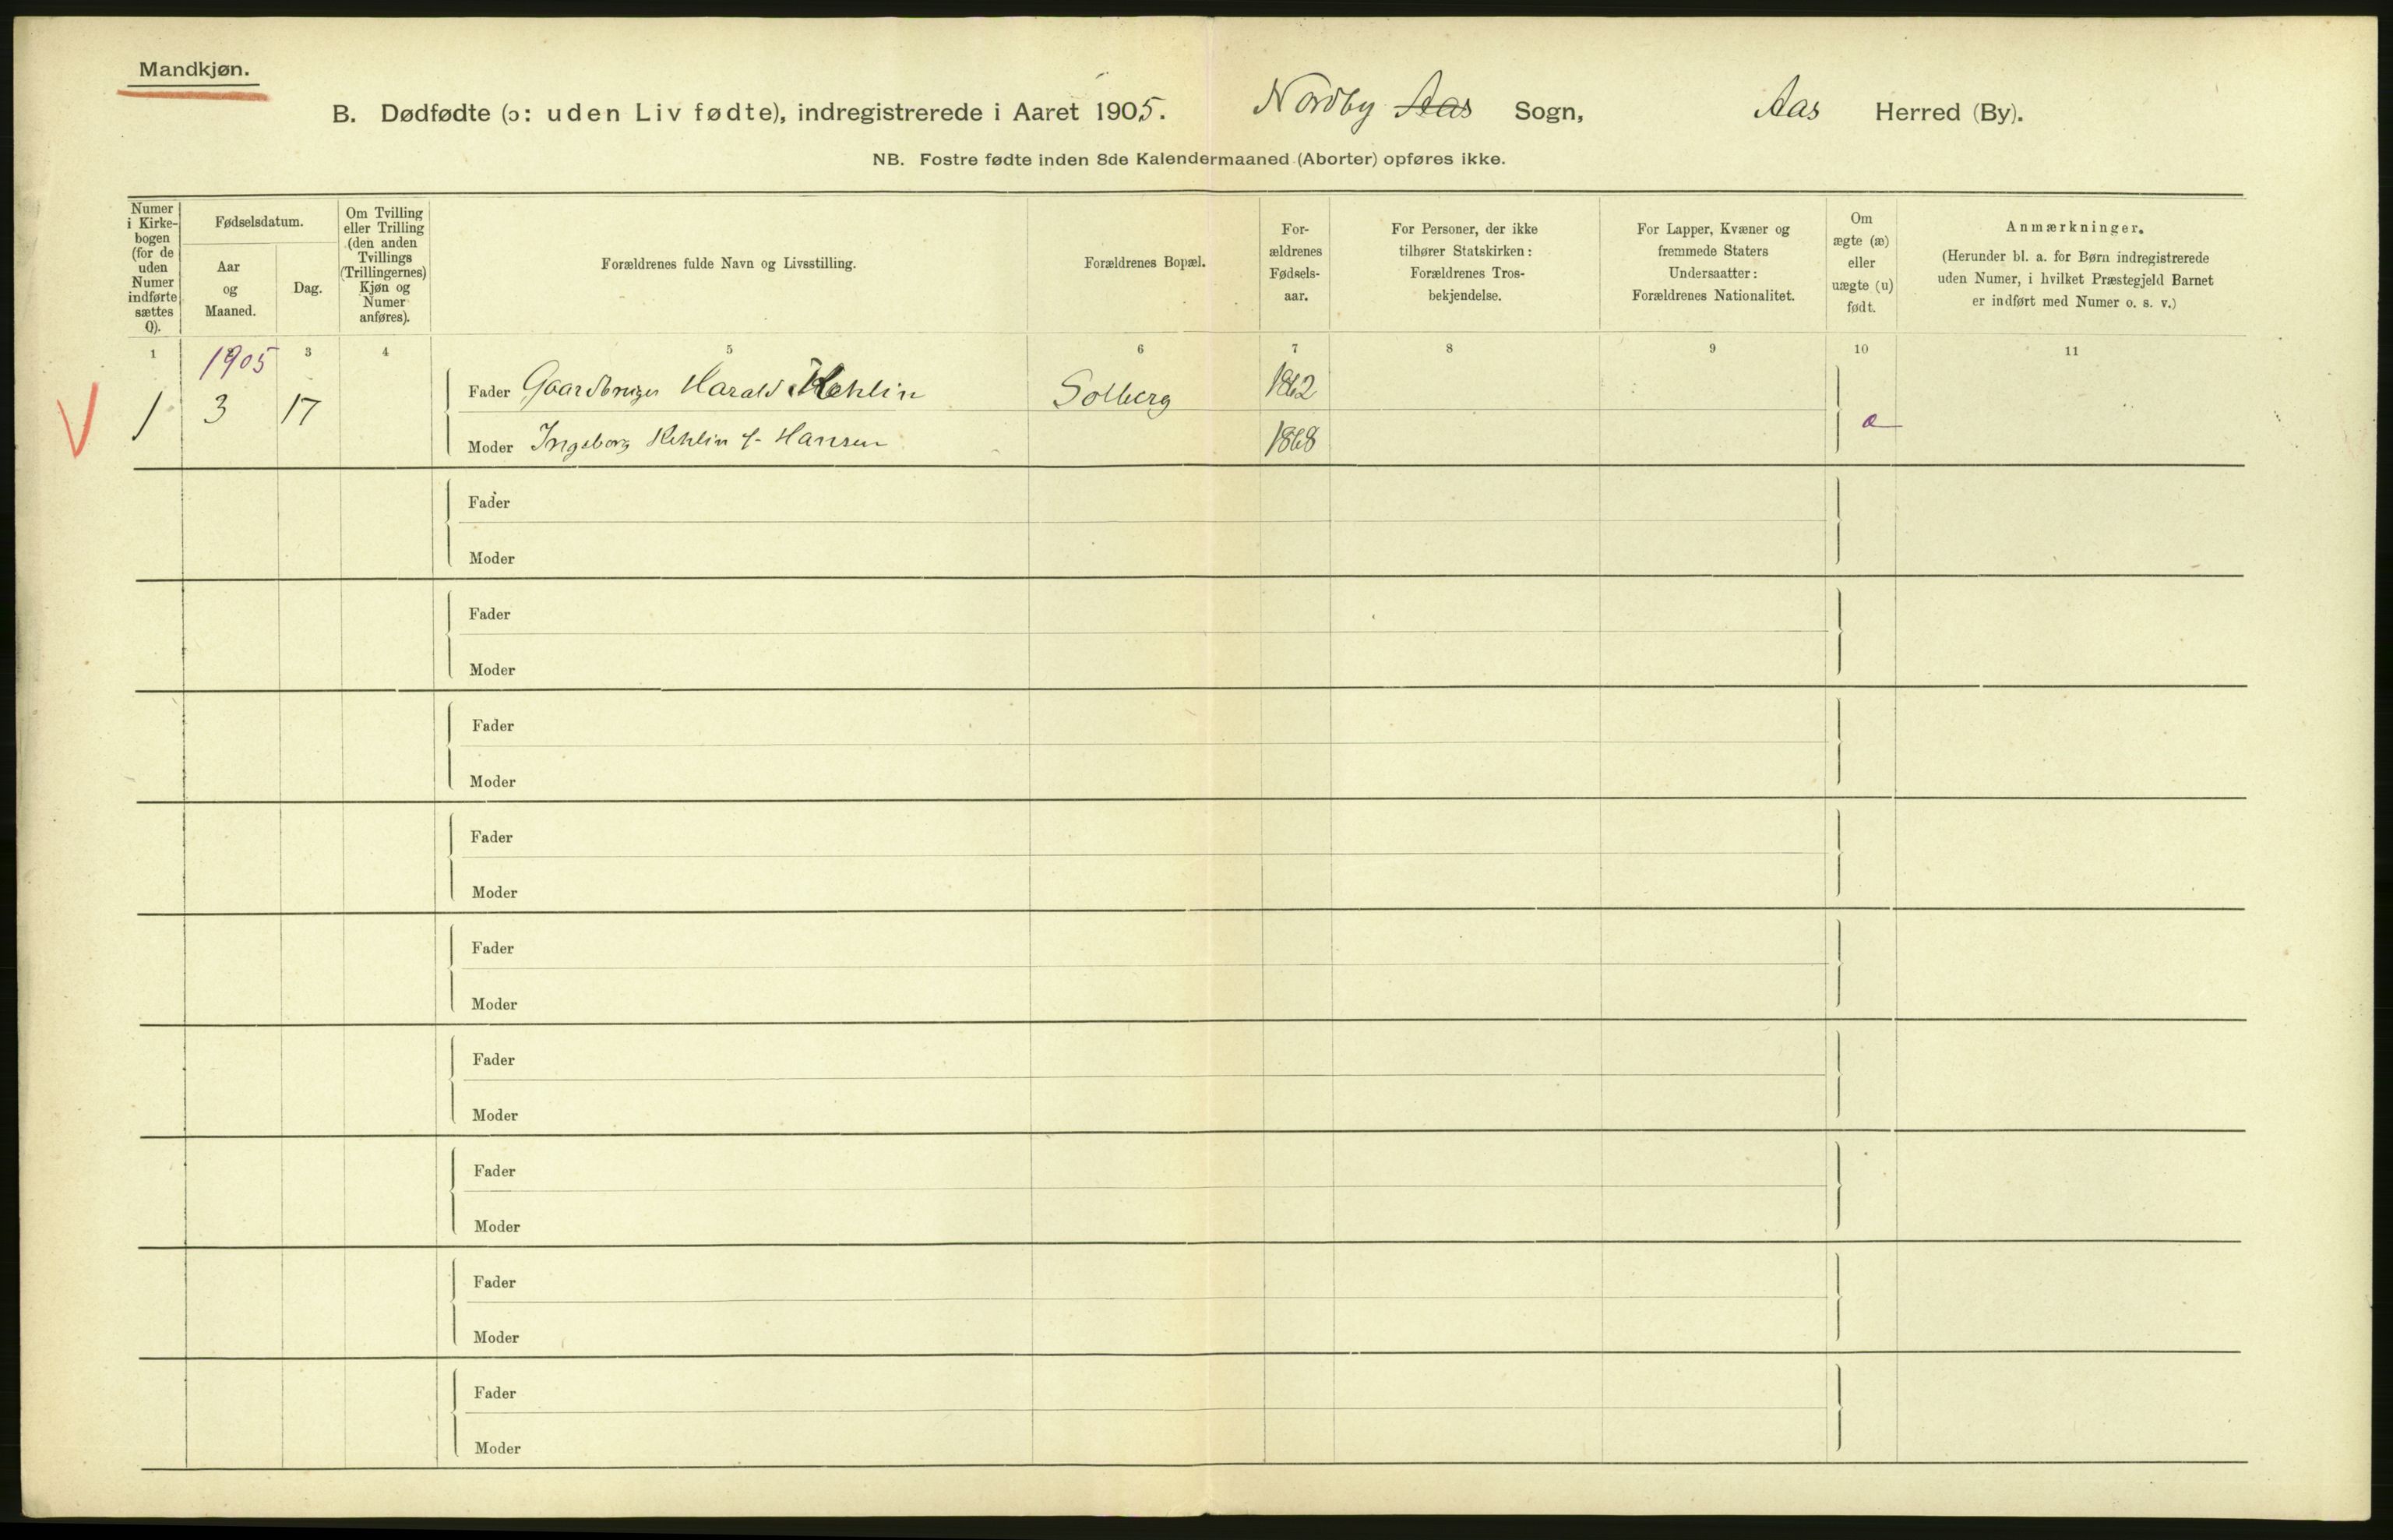 Mandkjøn.
B. Dødfødte (ɔ: uden Liv fødte), indregistrerede i Aaret 1905. Nordby Aas Sogn, Aas Herred (By).
NB. Fostre fødte inden 8de Kalendermaaned (Aborter) opføres ikke.
Numer
i Kirke-
bogen
(for de
uden
Numer
indførte
sættes
0).
Fødselsdatum.
Aar
og
Maaned.
Dag.
Om Tvilling
eller Trilling
(den anden
Tvillings
(Trillingernes)
Kjøn og
Numer
anføres).
Forældrenes fulde Navn og Livsstilling.
Forældrenes Bopæl.
For-
ældrenes
Fødsels-
aar.
For Personer, der ikke
tilhører Statskirken:
Forældrenes Tros-
bekjendelse.
For Lapper, Kvæner og
fremmede Staters
Undersaatter:
Forældrenes Nationalitet.
Om
ægte (æ)
eller
uægte (u)
født.
Anmærkninger.
(Herunder bl. a. for Børn indregistrerede
uden Numer, i hvilket Præstegjeld Barnet
er indført med Numer o. s. v.)
1 3 4 5 6 7 8 9 10 11
1905
Fader Gaardbruger Harald Kehlin Solberg 1862
1 3 17
Moder Ingeborg Kehlin f. Hansen 1868
Fader
Moder
Fader
Moder
Fader
Moder
Fader
Moder
Fader
Moder
Fader
Moder
Fader
Moder
Fader
Moder
Fader
Moder